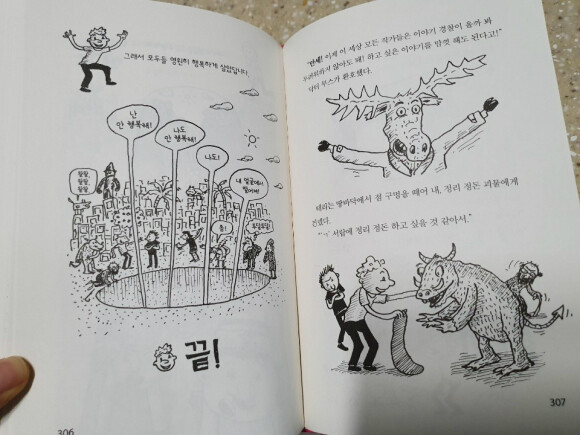 그래서 모두들 영원히 행복하게 살았답니다.
난
안 행복해!
나도
안 행복해!
나도!
내 얼굴에서
떨어져!
끝!
306
"만세! 이제 이 세상 모든 작가들은 이야기 경찰이 올까 봐
두려워하지 않아도 돼! 하고 싶은 이야기를 맘껏 해도 된다고!"
닥터 무스가 환호했다.
테리는 땅바닥에서 잠 구멍을 떼어 내, 정리 정돈 괴물에게
건넸다.
서랍에 정리 정돈 하고 싶을 것 같아서."
307